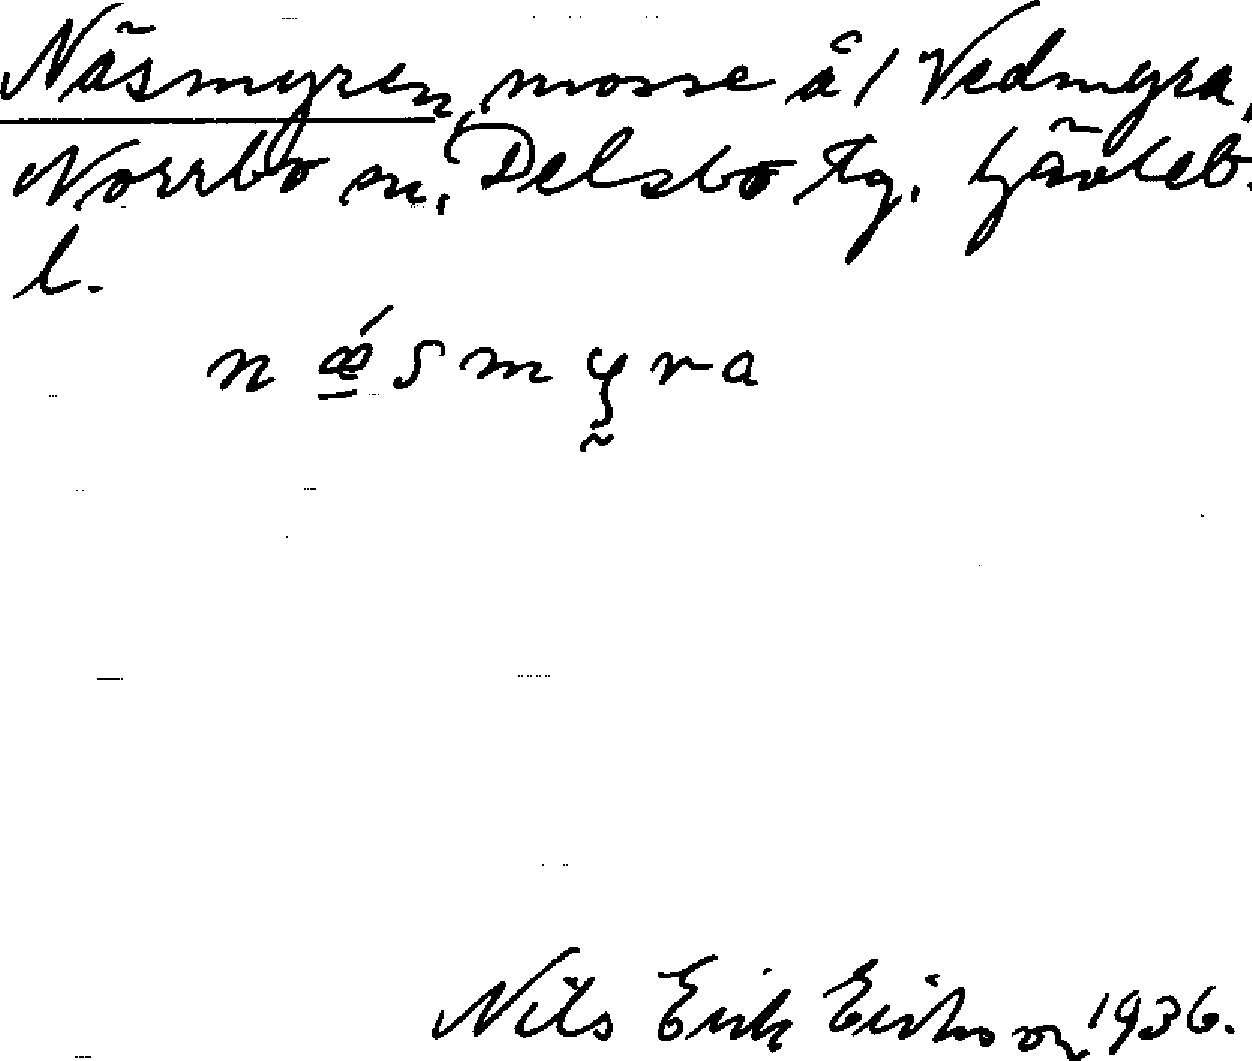 Näsmyren, mosse å / Vedmyra,
Norrbo sn, Delsbo tg. Gävleb.
l.
n ǽ s m y r a
Nils Erik Eriksson 1936.